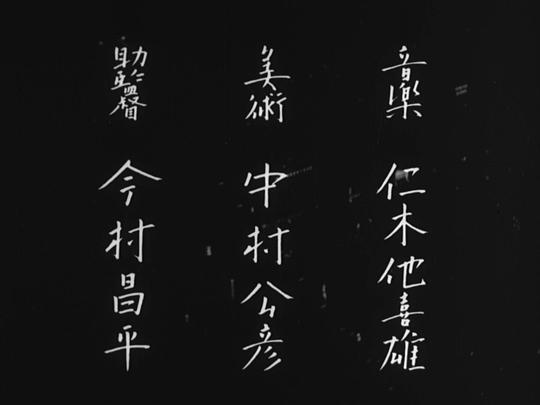 音楽
仁木他喜雄
美術
中村公彦
助監督
今村昌平